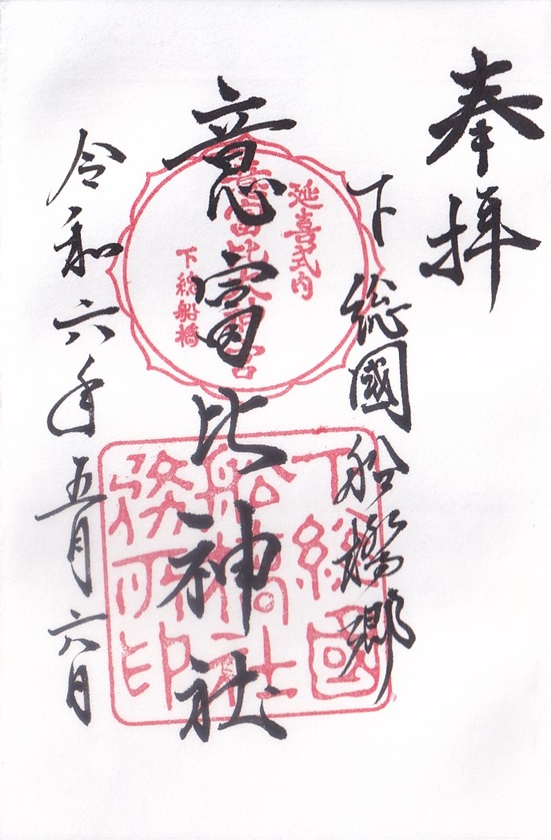 奉拝
下総國船橋郷
意富比神社
令和六年五月六日
延喜式内
意富比大神宮
下総船橋
下総國
船橋社
務所印